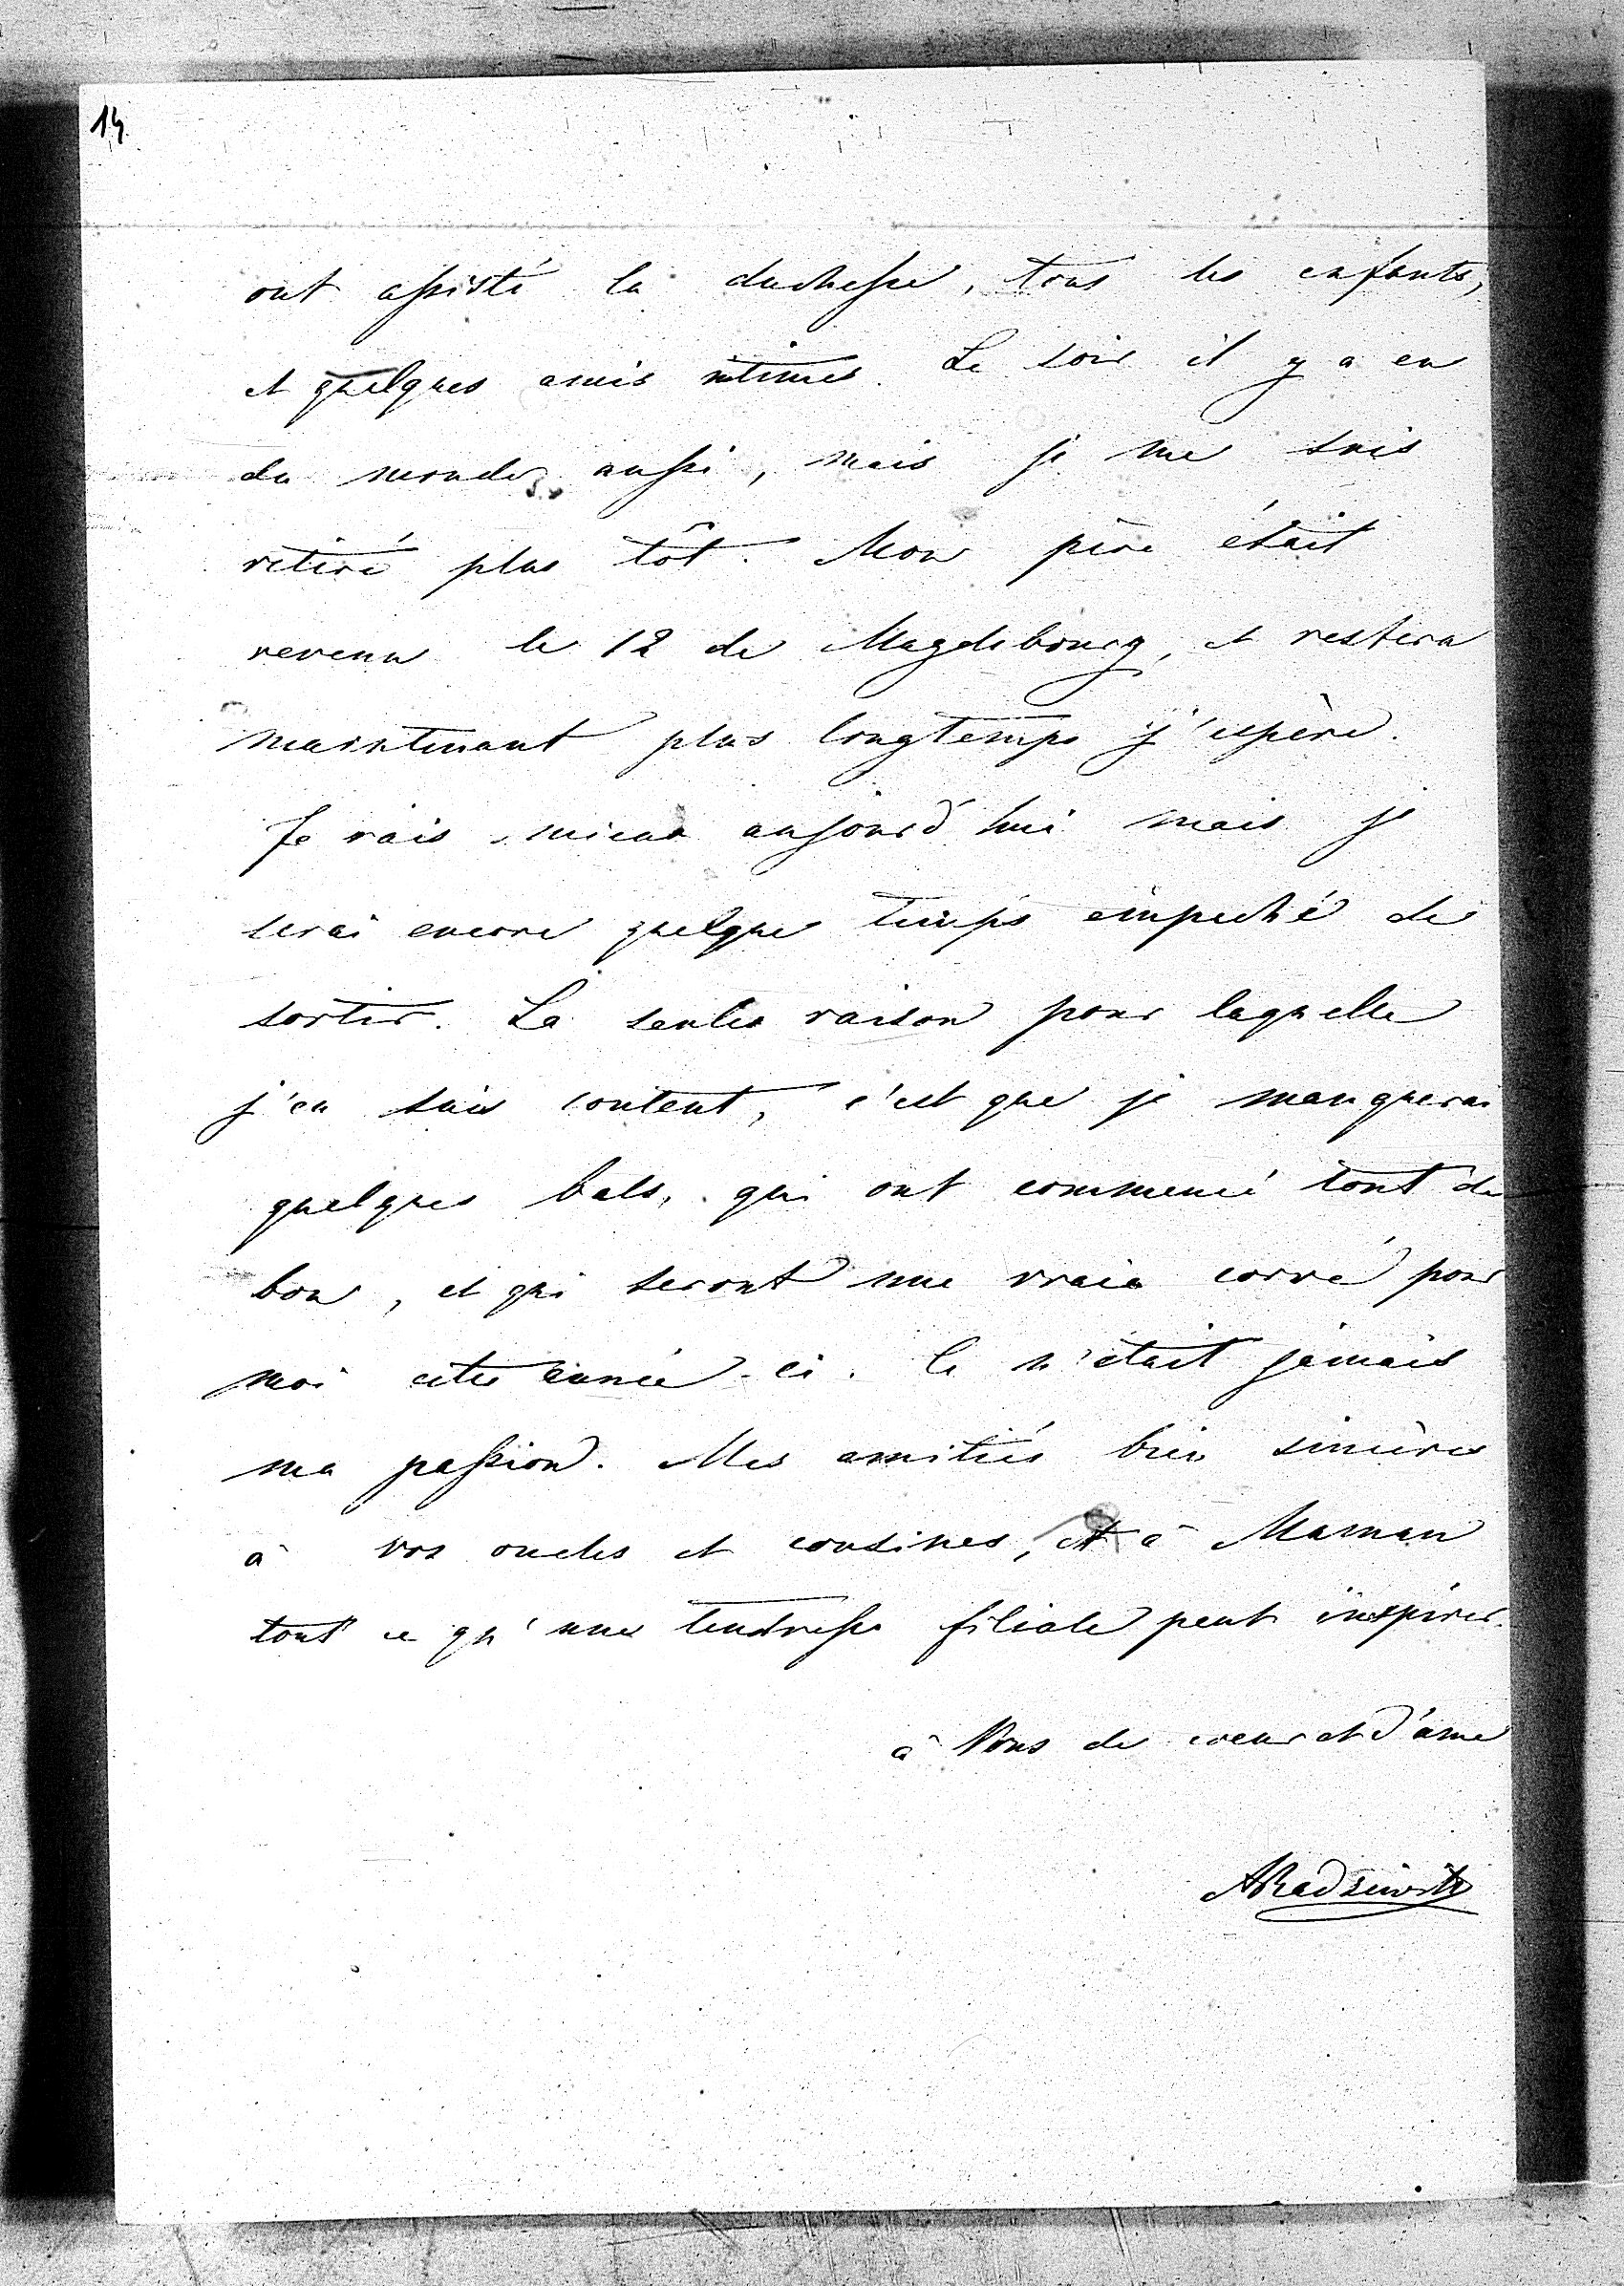 14
ont assisté la duchesse, tous les enfants,
et quelques amis intimes. Le soir il y a eu
du monde aussi, mais je me suis
retiré plus tôt. Mon père était
revenu le 12 de Magdebourg, et restera
maintenant plus longtemps j'espère.
Je vais mieux aujourd'hui mais je
serai encore quelque temps empeché de
sortir. La seule raison pour laquelle
j'en suis content, c'est que je manquerai
quelques bals, qui ont commencé tout de
bon, et qui seront une vraie corvé pour
moi cette année-ci. Ce n'était jamais
ma passion. Mes amitiés bien sincères
à vos oncles et cousines, et à Maman
tout ce qu'une tendresse filiale peut inspirer.
à Vous de coeur et d'âme
ARadziwill